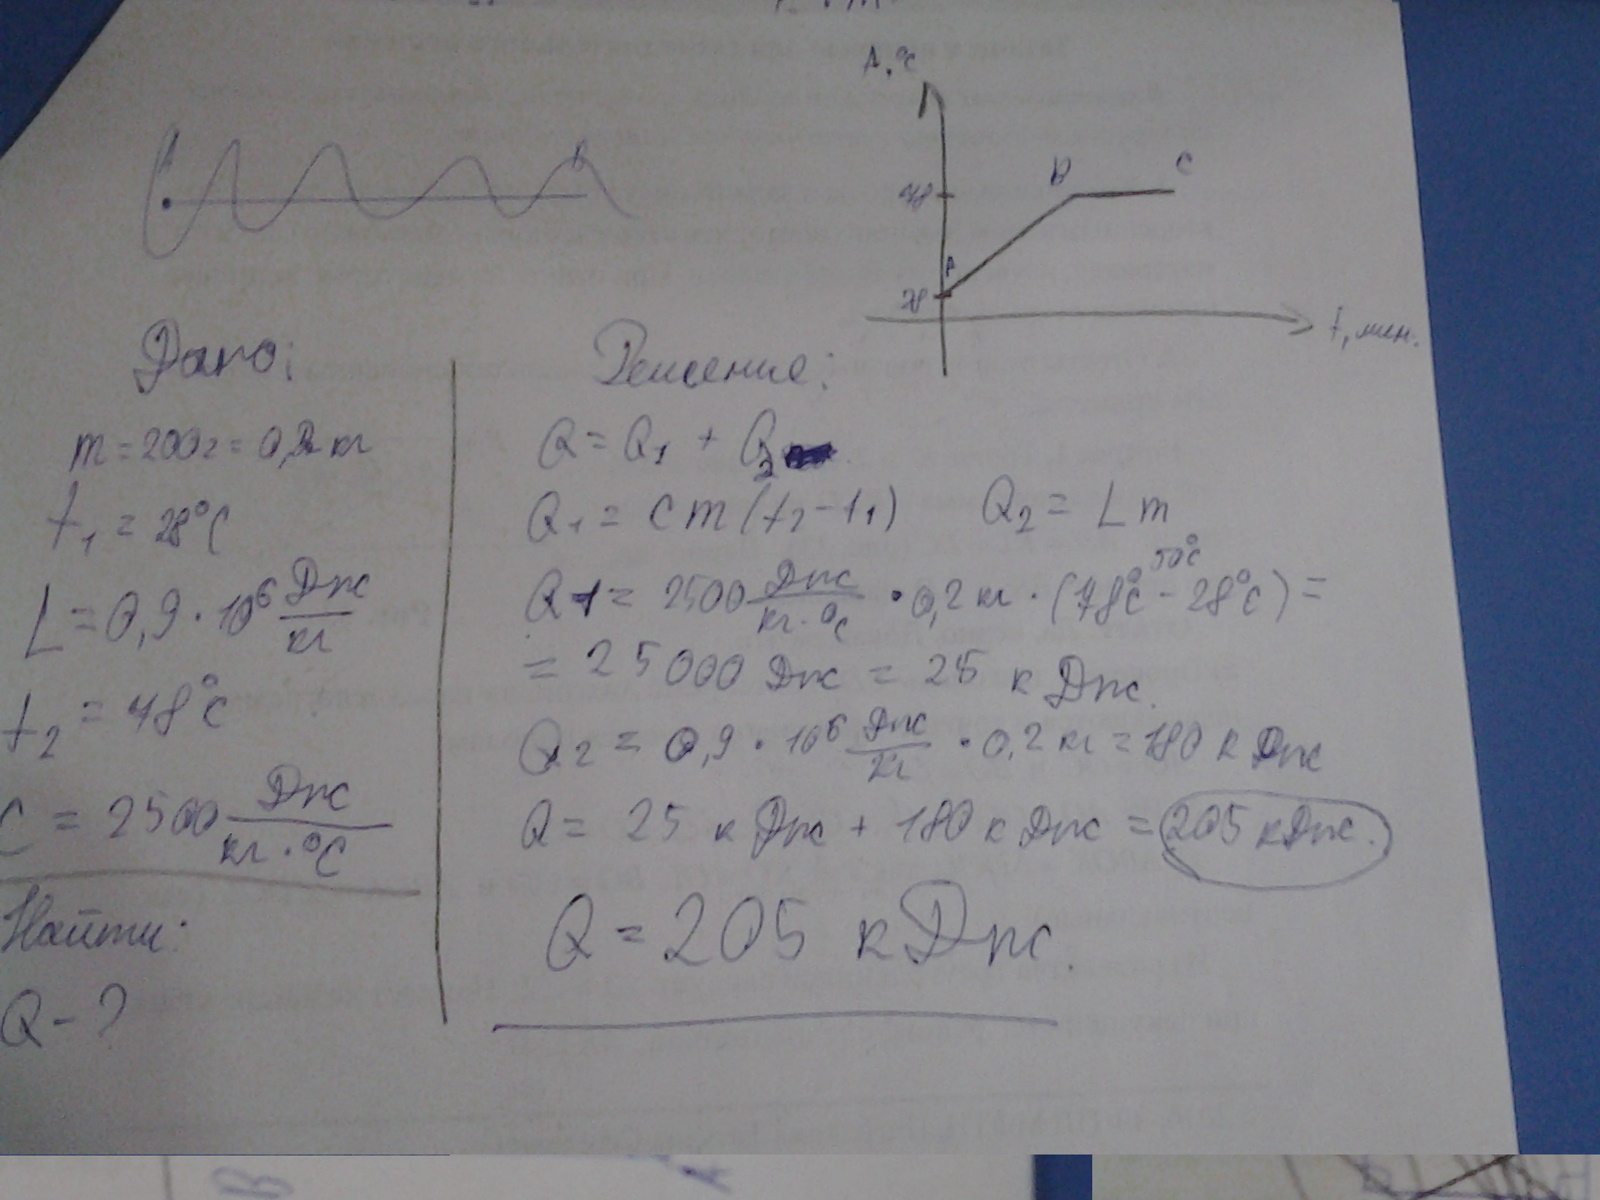 t, °C
78
B
C
A
28
t, мин.
Дано:
m = 200г = 0,2 кг
t₁ = 28°C
L = 0,9 · 10⁶ Дж/кг
t₂ = 78°C
C = 2500 Дж/кг·°C
Найти:
Q - ?
Решение:
Q = Q₁ + Q₂
Q₁ = Cm(t₂ - t₁) Q₂ = Lm
50°C
Q₁ = 2500 Дж/кг·°C · 0,2 кг · (78°C - 28°C) =
= 25000 Дж = 25 кДж.
Q₂ = 0,9 · 10⁶ Дж/кг · 0,2 кг = 180 кДж
Q = 25 кДж + 180 кДж = 205 кДж.
Q = 205 кДж.